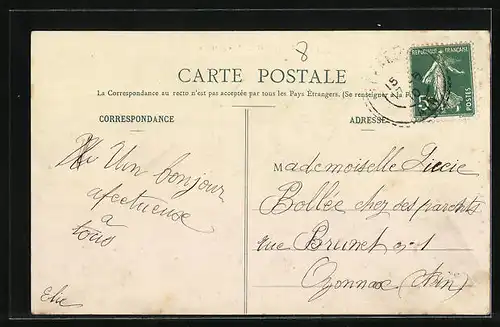 8
CARTE POSTALE
La Correspondance au recto n'est pas acceptée par tous les Pays Étrangers. (Se renseigner à la
CORRESPONDANCE
ADRESSE
REPUBLIQUE FRANÇAISE
5c
POSTES
Un bonjour
afectueuse
a
tous
Mademoiselle Lucie
Bollée chez des parents
rue Brunet
Oyonnax (Ain)